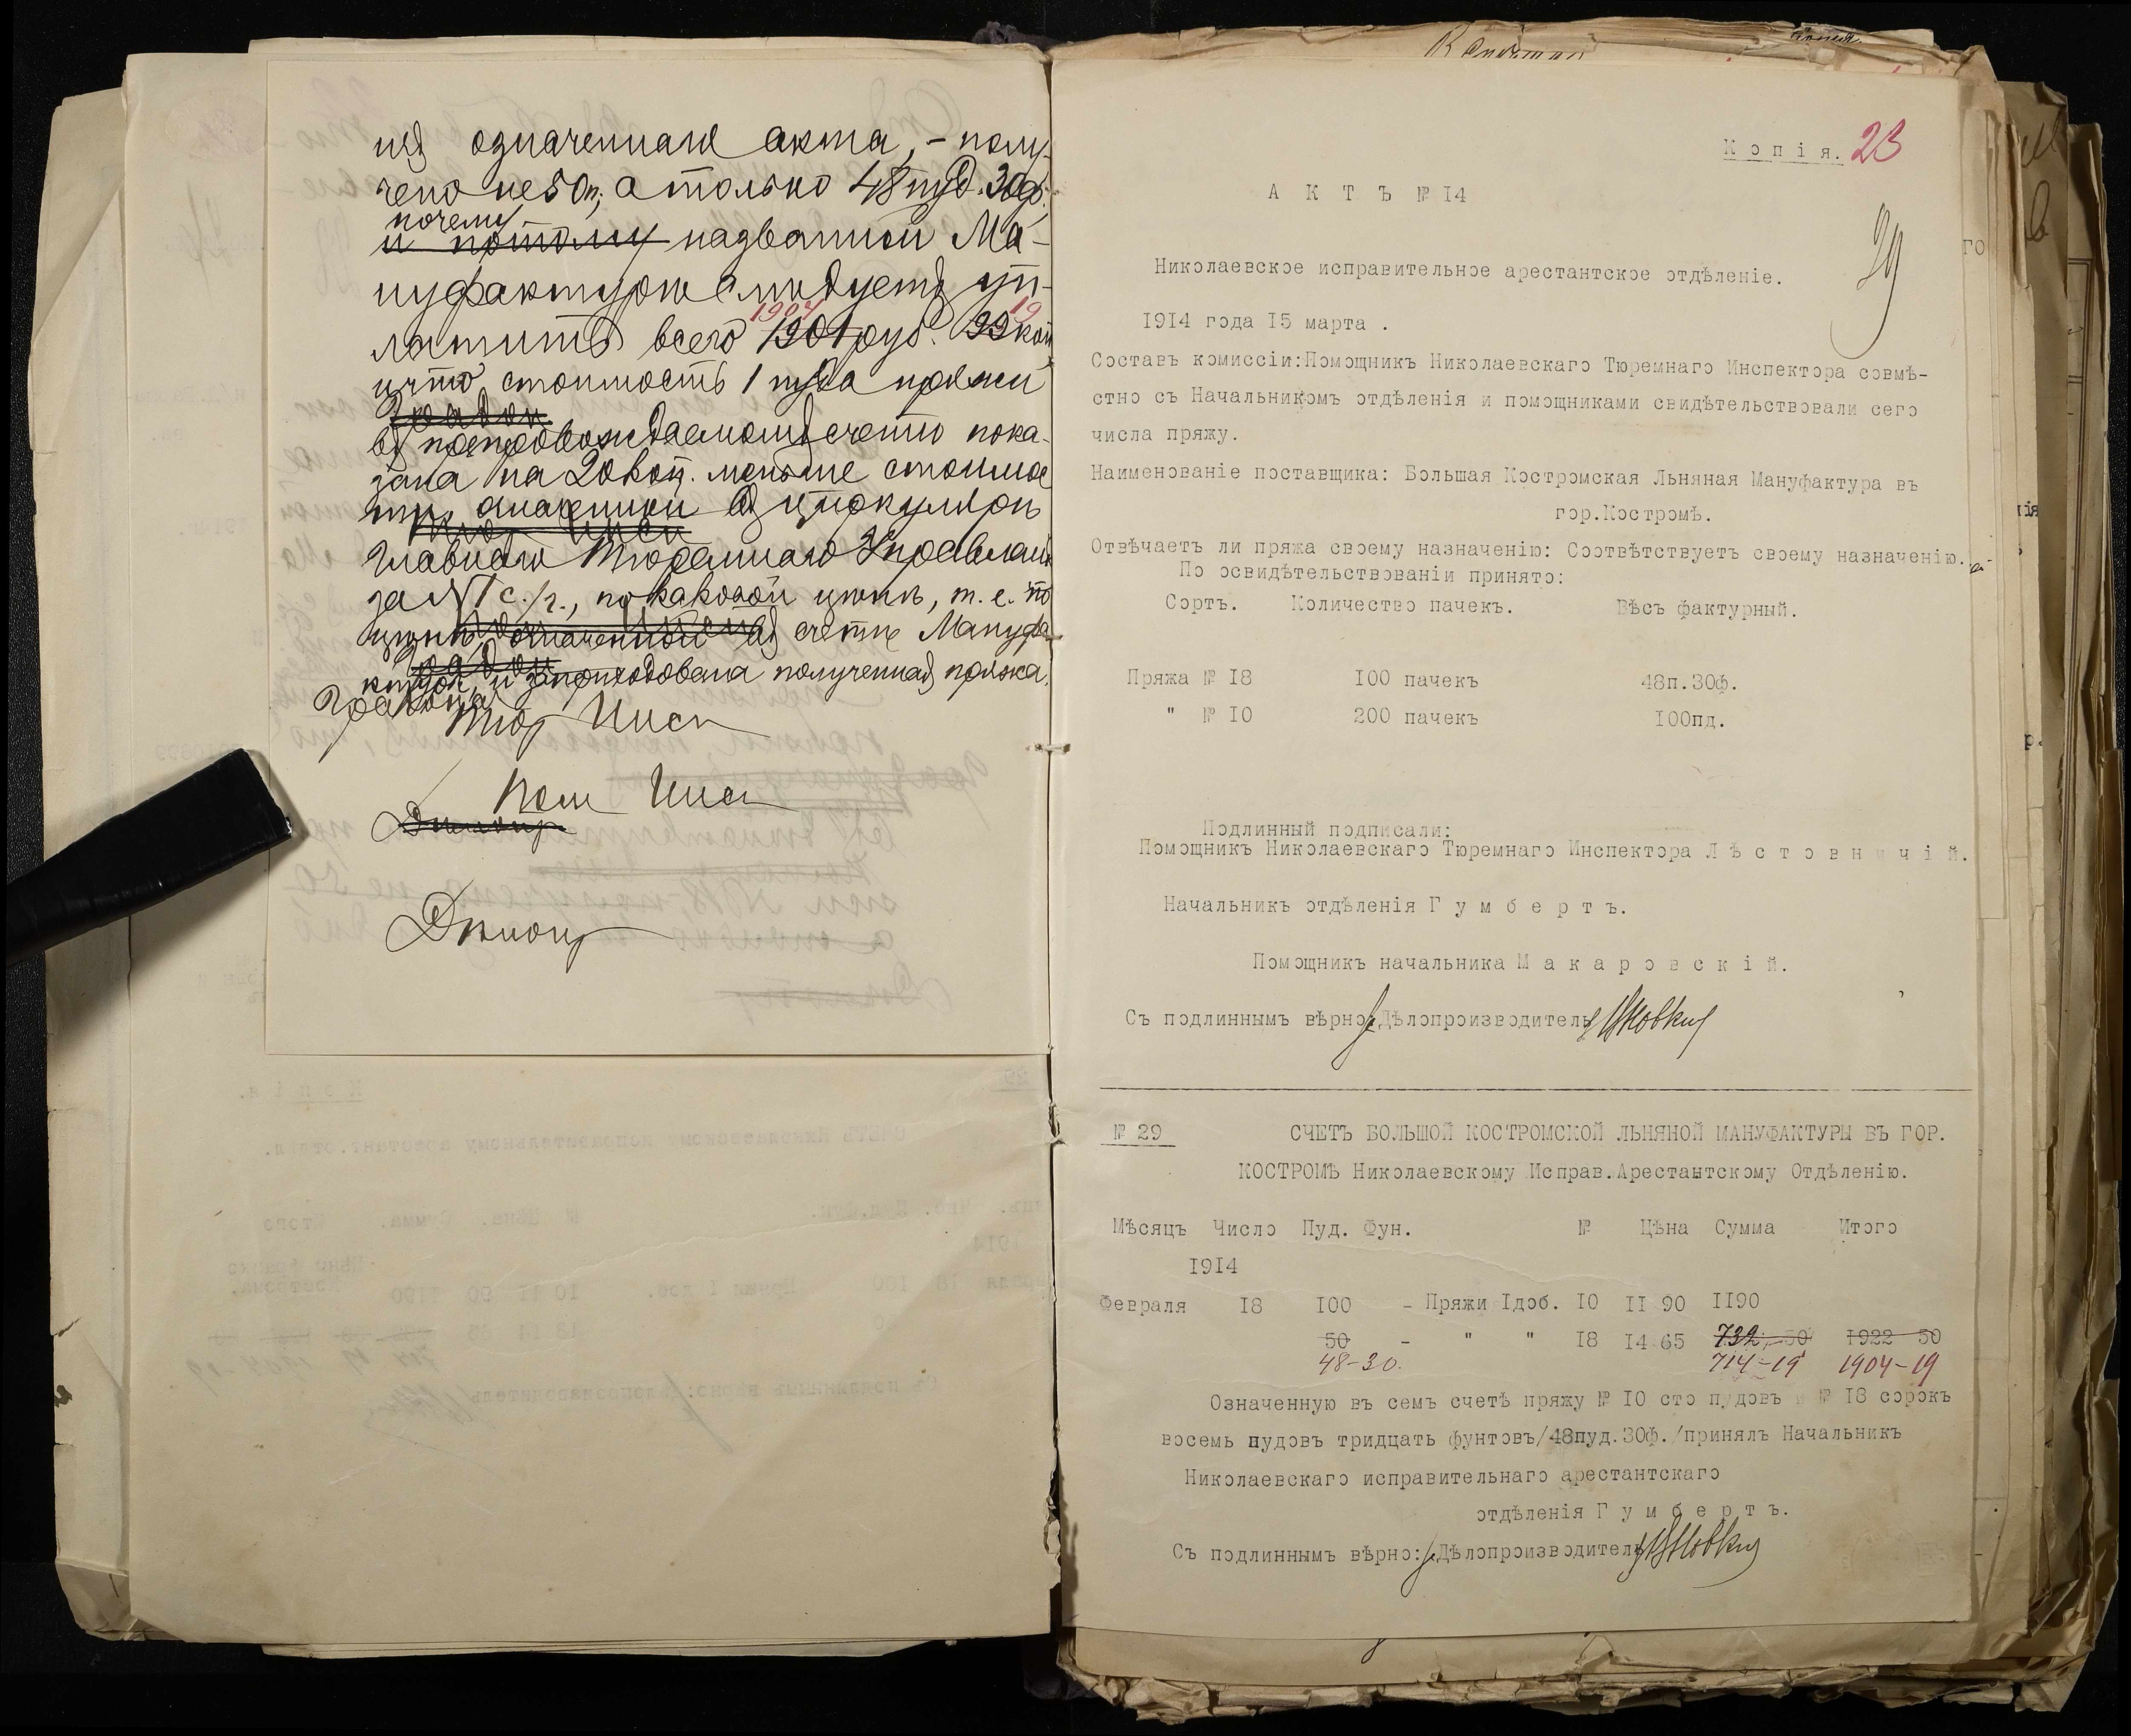 из означеннаго акта, - полу-
чено не 50 п, а только 48 пуд. 30 ф.,
почему
и потому названной Ма-
нуфактуре следуетъ уп-
1904 19
латить всего 1901 руб. 99 коп
и что стоимость 1 пуда пряжи
въ препровождаемомъ счете пока-
зана на 20 коп. меньше стоимос
ти, означенной въ циркуляре
Главнаго Тюремнаго Управления
за № с./г., по каковой цене, т. е. по
цене, означенной въ счете Мануфа
ктуры, и заприходована полученная пряжа.
Тюр Инсп
Пом Инсп
Делопр
Делопр
Копія. 23
АКТЪ № 14
29
Николаевское исправительное арестантское отдѣленіе.
1914 года 15 марта .
Составъ комиссіи:Помощникъ Николаевскаго Тюремнаго Инспектора совмѣ-
стно съ Начальникомъ отдѣленія и помощниками свидѣтельствовали сего
числа пряжу.
Наименованіе поставщика: Большая Костромская Льняная Мануфактура въ
гор.Костромѣ.
Отвѣчаетъ ли пряжа своему назначенію: Соотвѣтствуетъ своему назначенію.
По освидѣтельствованіи принято:
Сортъ. Количество пачекъ. Вѣсъ фактурный.
Пряжа № 18 100 пачекъ 48п.30ф.
" № 10 200 пачекъ 100пд.
Подлинный подписали:
Помощникъ Николаевскаго Тюремнаго Инспектора Лѣстовничій.
Начальникъ отдѣленія Гумбертъ.
Помощникъ начальника Макаровскій.
Съ подлиннымъ вѣрно: Дѣлопроизводитель
№ 29 СЧЕТЪ БОЛЬШОЙ КОСТРОМСКОЙ ЛЬНЯНОЙ МАНУФАКТУРЫ ВЪ ГОР.
КОСТРОМѢ Николаевскому Исправ.Арестантскому Отдѣленію.
Мѣсяцъ Число Пуд. Фун. № Цѣна Сумма Итого
1914
Февраля 18 100 - Пряжи 1доб. 10 11 90 1190
50 - " " 18 14 65 732,-50 1922 50
48-30. 714-19 1904-19
Означенную въ семъ счетѣ пряжу № 10 сто пудовъ и № 18 сорокъ
восемь пудовъ тридцать фунтовъ/48пуд.30ф./принялъ Начальникъ
Николаевскаго исправительнаго арестантскаго
отдѣленія Гумбертъ.
Съ подлиннымъ вѣрно: Дѣлопроизводитель